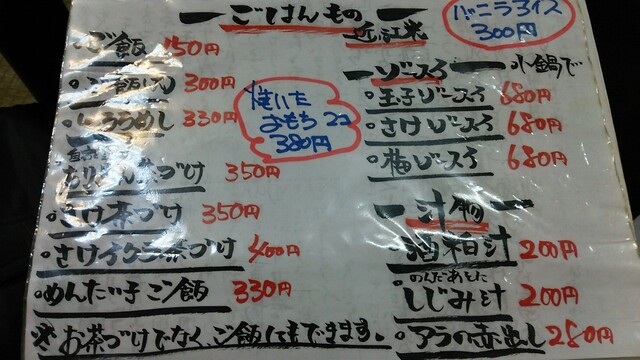 ごはんもの
近江米
ご飯 150円
300円
しょううめし 330円
茶づけ 350円
さけ茶づけ 350円
さけイクラ茶づけ 400円
めんたい子ご飯 330円
※お茶づけでなく、ご飯にもできます。
焼いた
おもち 2コ
380円
バニラアイス
300円
ゾースイ 小鍋で
玉子ゾースイ 680円
さけゾースイ 680円
梅ゾースイ 680円
汁物
酒粕汁 200円
のんだあとに
しじみ汁 200円
アラの赤出し 280円